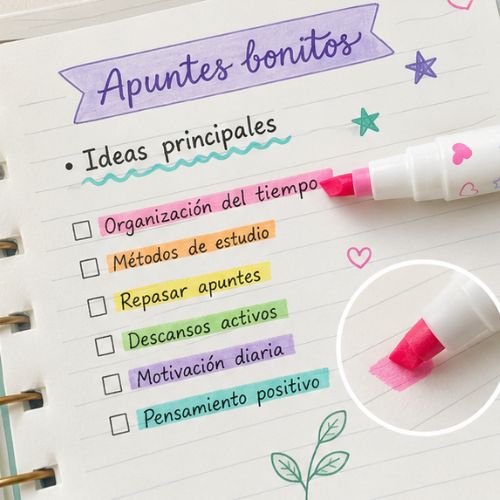 Apuntes bonitos
• Ideas principales
Organización del tiempo
Métodos de estudio
Repasar apuntes
Descansos activos
Motivación diaria
Pensamiento positivo